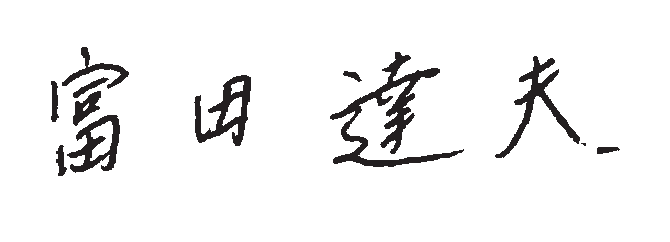 富田達夫